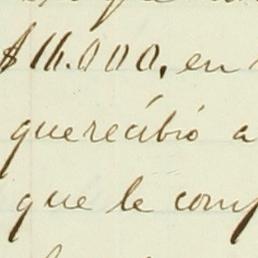 $16.000, en
que recibió a
que le com